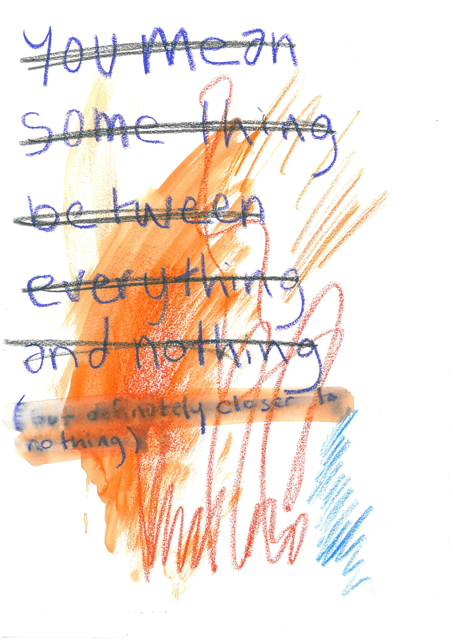 you mean
some thing
between
everything
and nothing
(but definitely closer to
nothing)